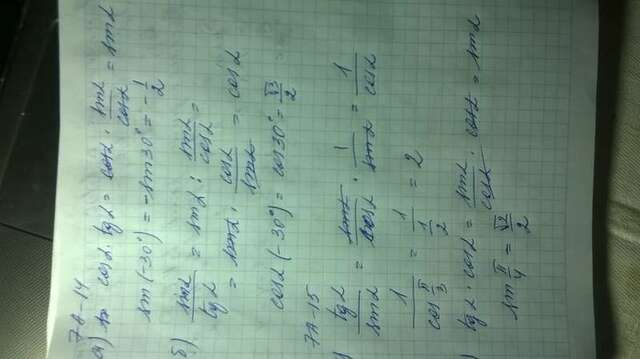 7A-14
а) cosα · tgα = cosα · sinα/cosα = sinα
sin(-30°) = -sin30° = -1/2
б) sinα/tgα = sinα : sinα/cosα =
= sinα · cosα/sinα = cosα
cosα(-30°) = cos30° = √3/2
7A-15
) tgα/sinα = sinα/cosα · 1/sinα = 1/cosα
1/cos π/3 = 1/(1/2) = 2
) tgα · cosα = sinα/cosα · cosα = sinα
sin π/4 = √2/2